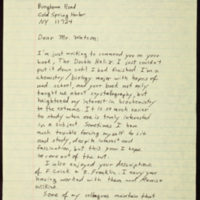 Bungtown Road
Cold Spring Harbor
NY 11724
Dear Mr. Watson:
I'm just writing to commend you on your
book, The Double Helix. I just couldn't
put it down until I had finished. I'm a
chemistry/biology major with hopes of
med school, and your book not only
taught me about crystallography, but
heightened my interest in biochemistry
to the extreme. It is so much easier
to study when one is truly interested
in a subject. Sometimes I have
much trouble forcing myself to sit
and study, despite interest and
fascination, but this year I hope
to come out of the rut.
I also enjoyed your descriptions
of F. Crick & R. Franklin. I envy your
having worked with them and Maurice
Wilkins.
Some of my colleagues maintain that